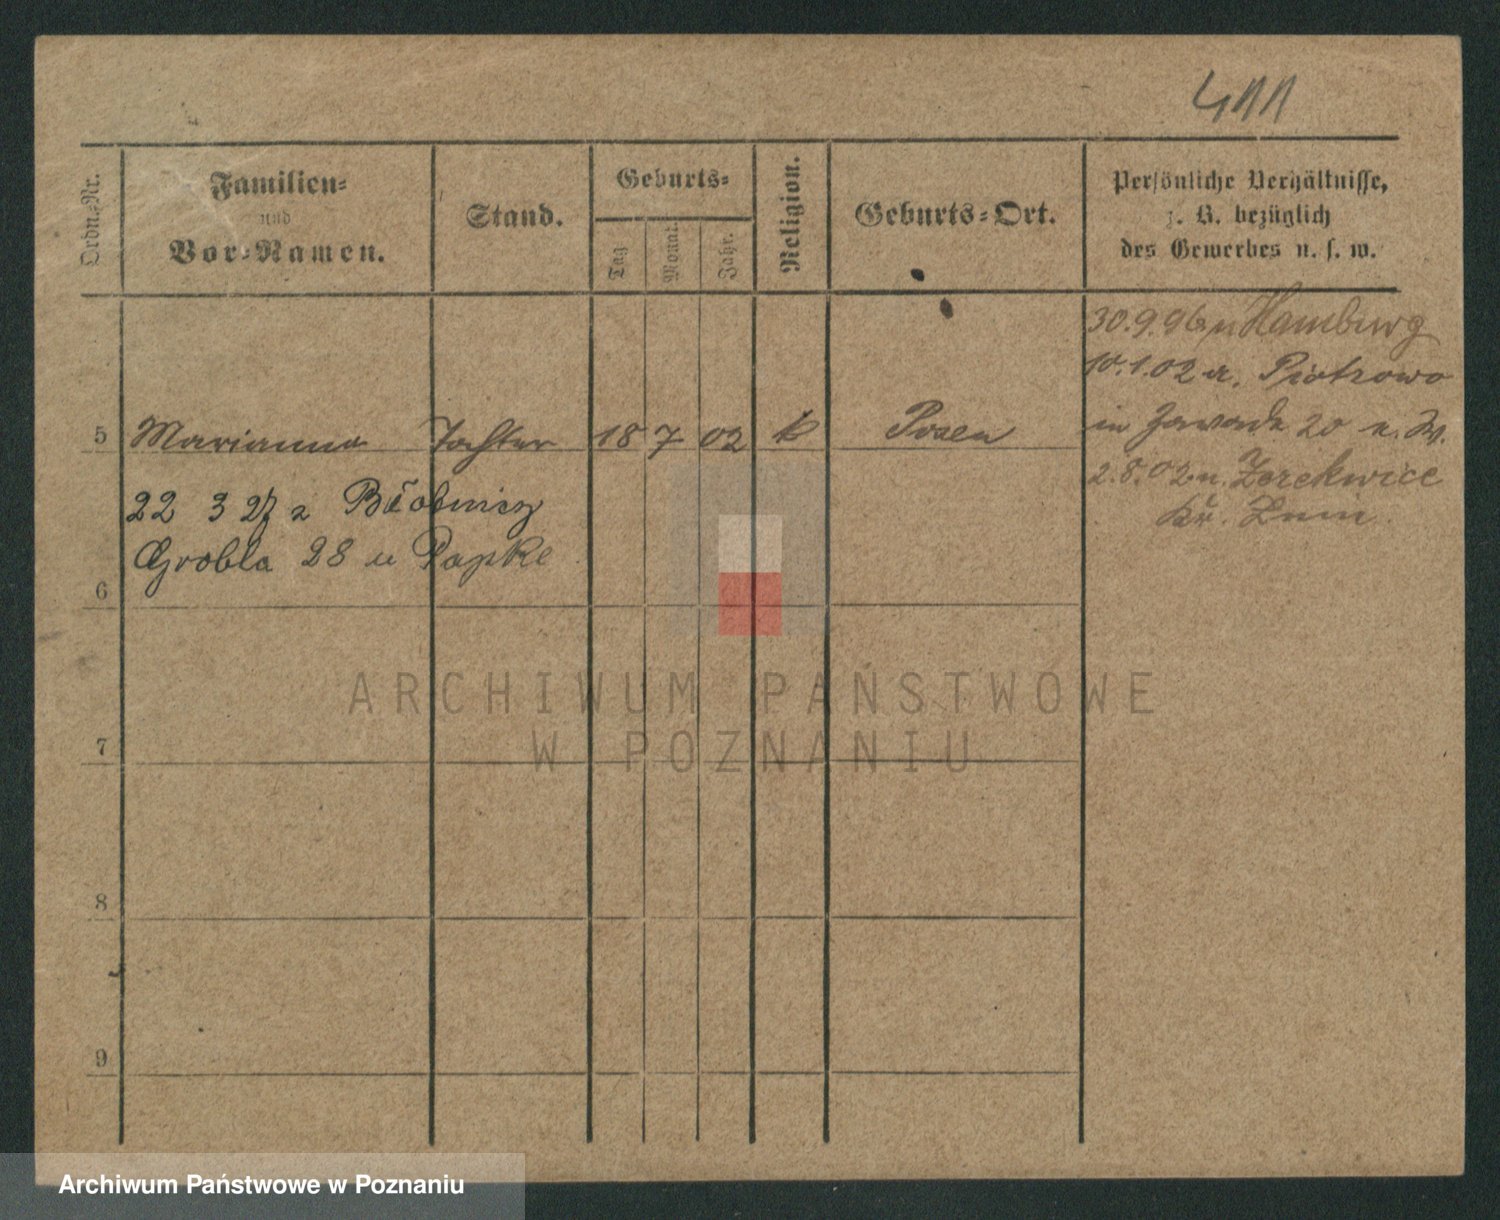 411
Ordn.-Nr.
Familien-
und
Vor-Namen.
Stand.
Geburts-
Tag
Monat.
Jahr.
Religion.
Geburts-Ort.
Persönliche Verhältnisse,
z. B. bezüglich
des Gewerbes u. s. w.
30.9.96 n Hamburg
10.1.02 a. Piotrowo
in Zawade 20 n. W.
2.8.02 n. Zerekwice
Kr. Znin
5 Marianna Tochter 18 7 02 k Posen
22 3 27 z
Grobla 28 u Papke
6
7
8
9
ARCHIWUM PAŃSTWOWE
W POZNANIU
Archiwum Państwowe w Poznaniu